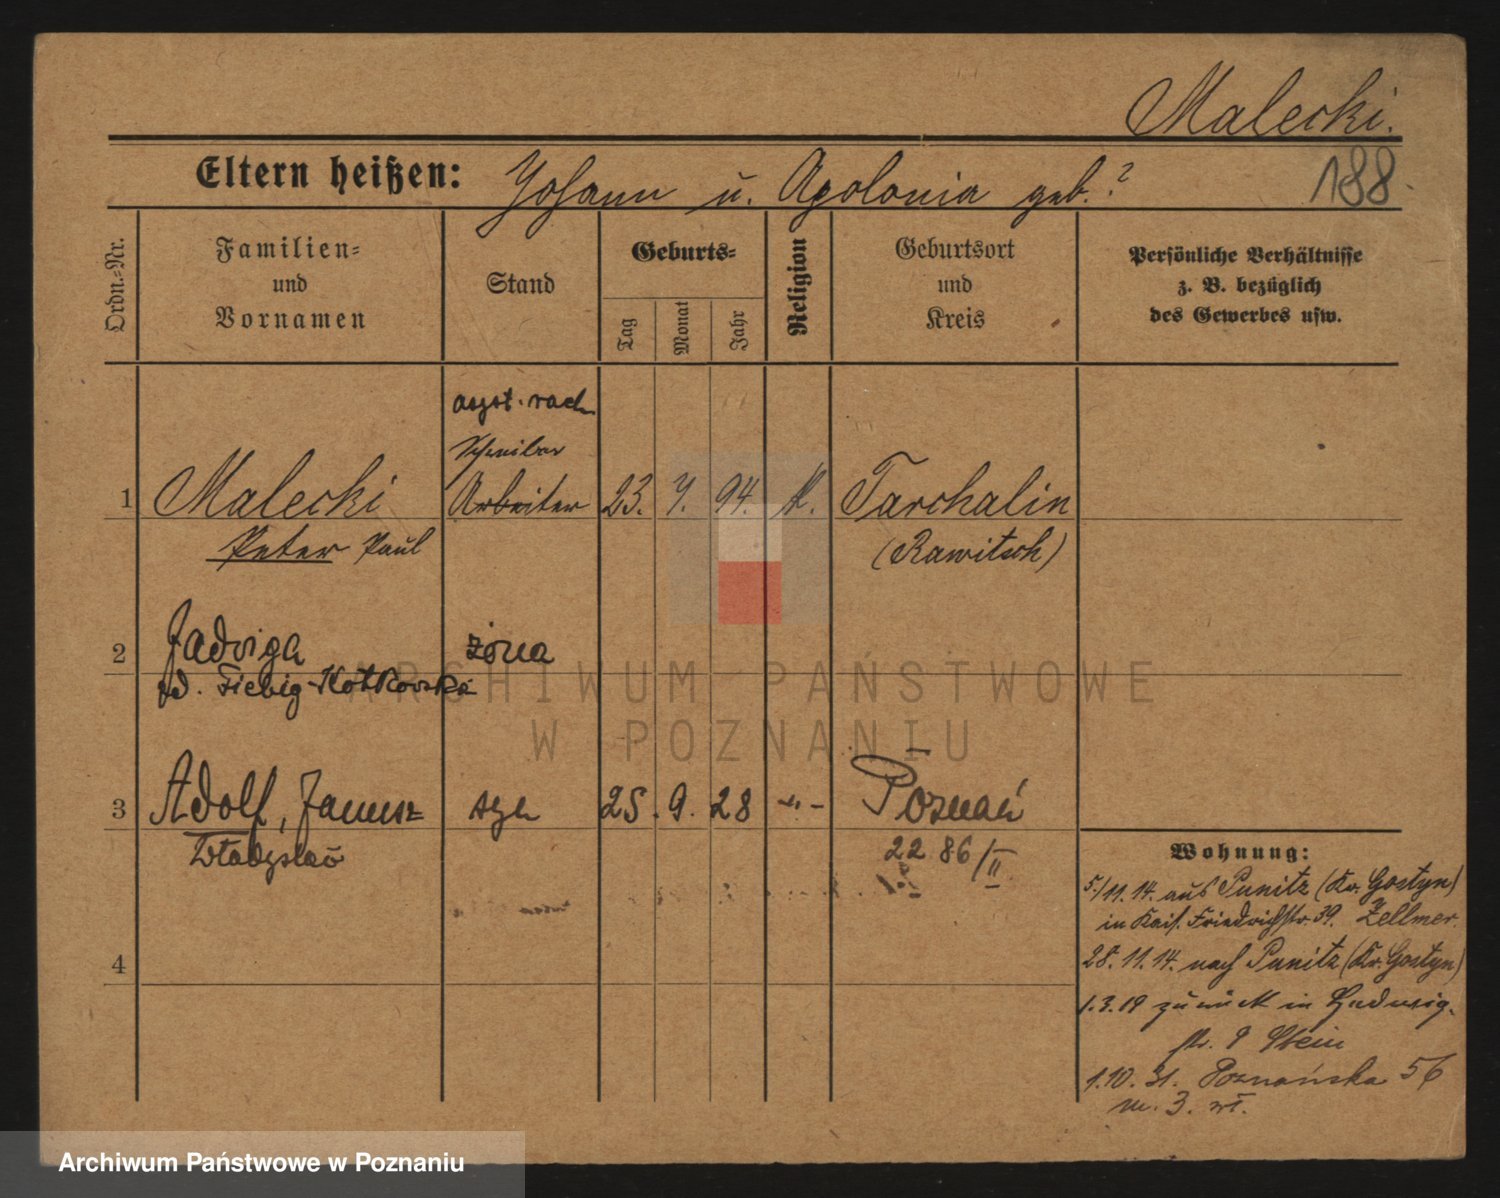 Malecki.
Eltern heißen: Johann u. Apolonia geb. ?
188
Ordn.=Nr.
Familien=
und
Vornamen
Stand
Geburts=
Tag
Monat
Jahr
Religion
Geburtsort
und
Kreis
Persönliche Verhältnisse
z. B. bezüglich
des Gewerbes usw.
asyst. rach
Schreiber
1 Malecki Arbeiter 23. 7. 94. k. Tarchalin
Peter Paul (Rawitsch)
2 Jadwiga żona
zd. Fiebig-Kotkowska
3 Adolf, Janusz syn 25. 9. 28 -"- Poznań
Władysław 22 86/II
4
Wohnung:
5./11. 14. aus Punitz (Kr. Gostyn)
in Kais. Friedrichstr. 39. Zellmer.
28. 11. 14. nach Punitz (Kr. Gostyn)
1. 3. 19 zurück in Hedwig-
str. 9 Stein
1. 10. 31. Poznańska 56
m. 3. wł.
ARCHIWUM PAŃSTWOWE
W POZNANIU
Archiwum Państwowe w Poznaniu